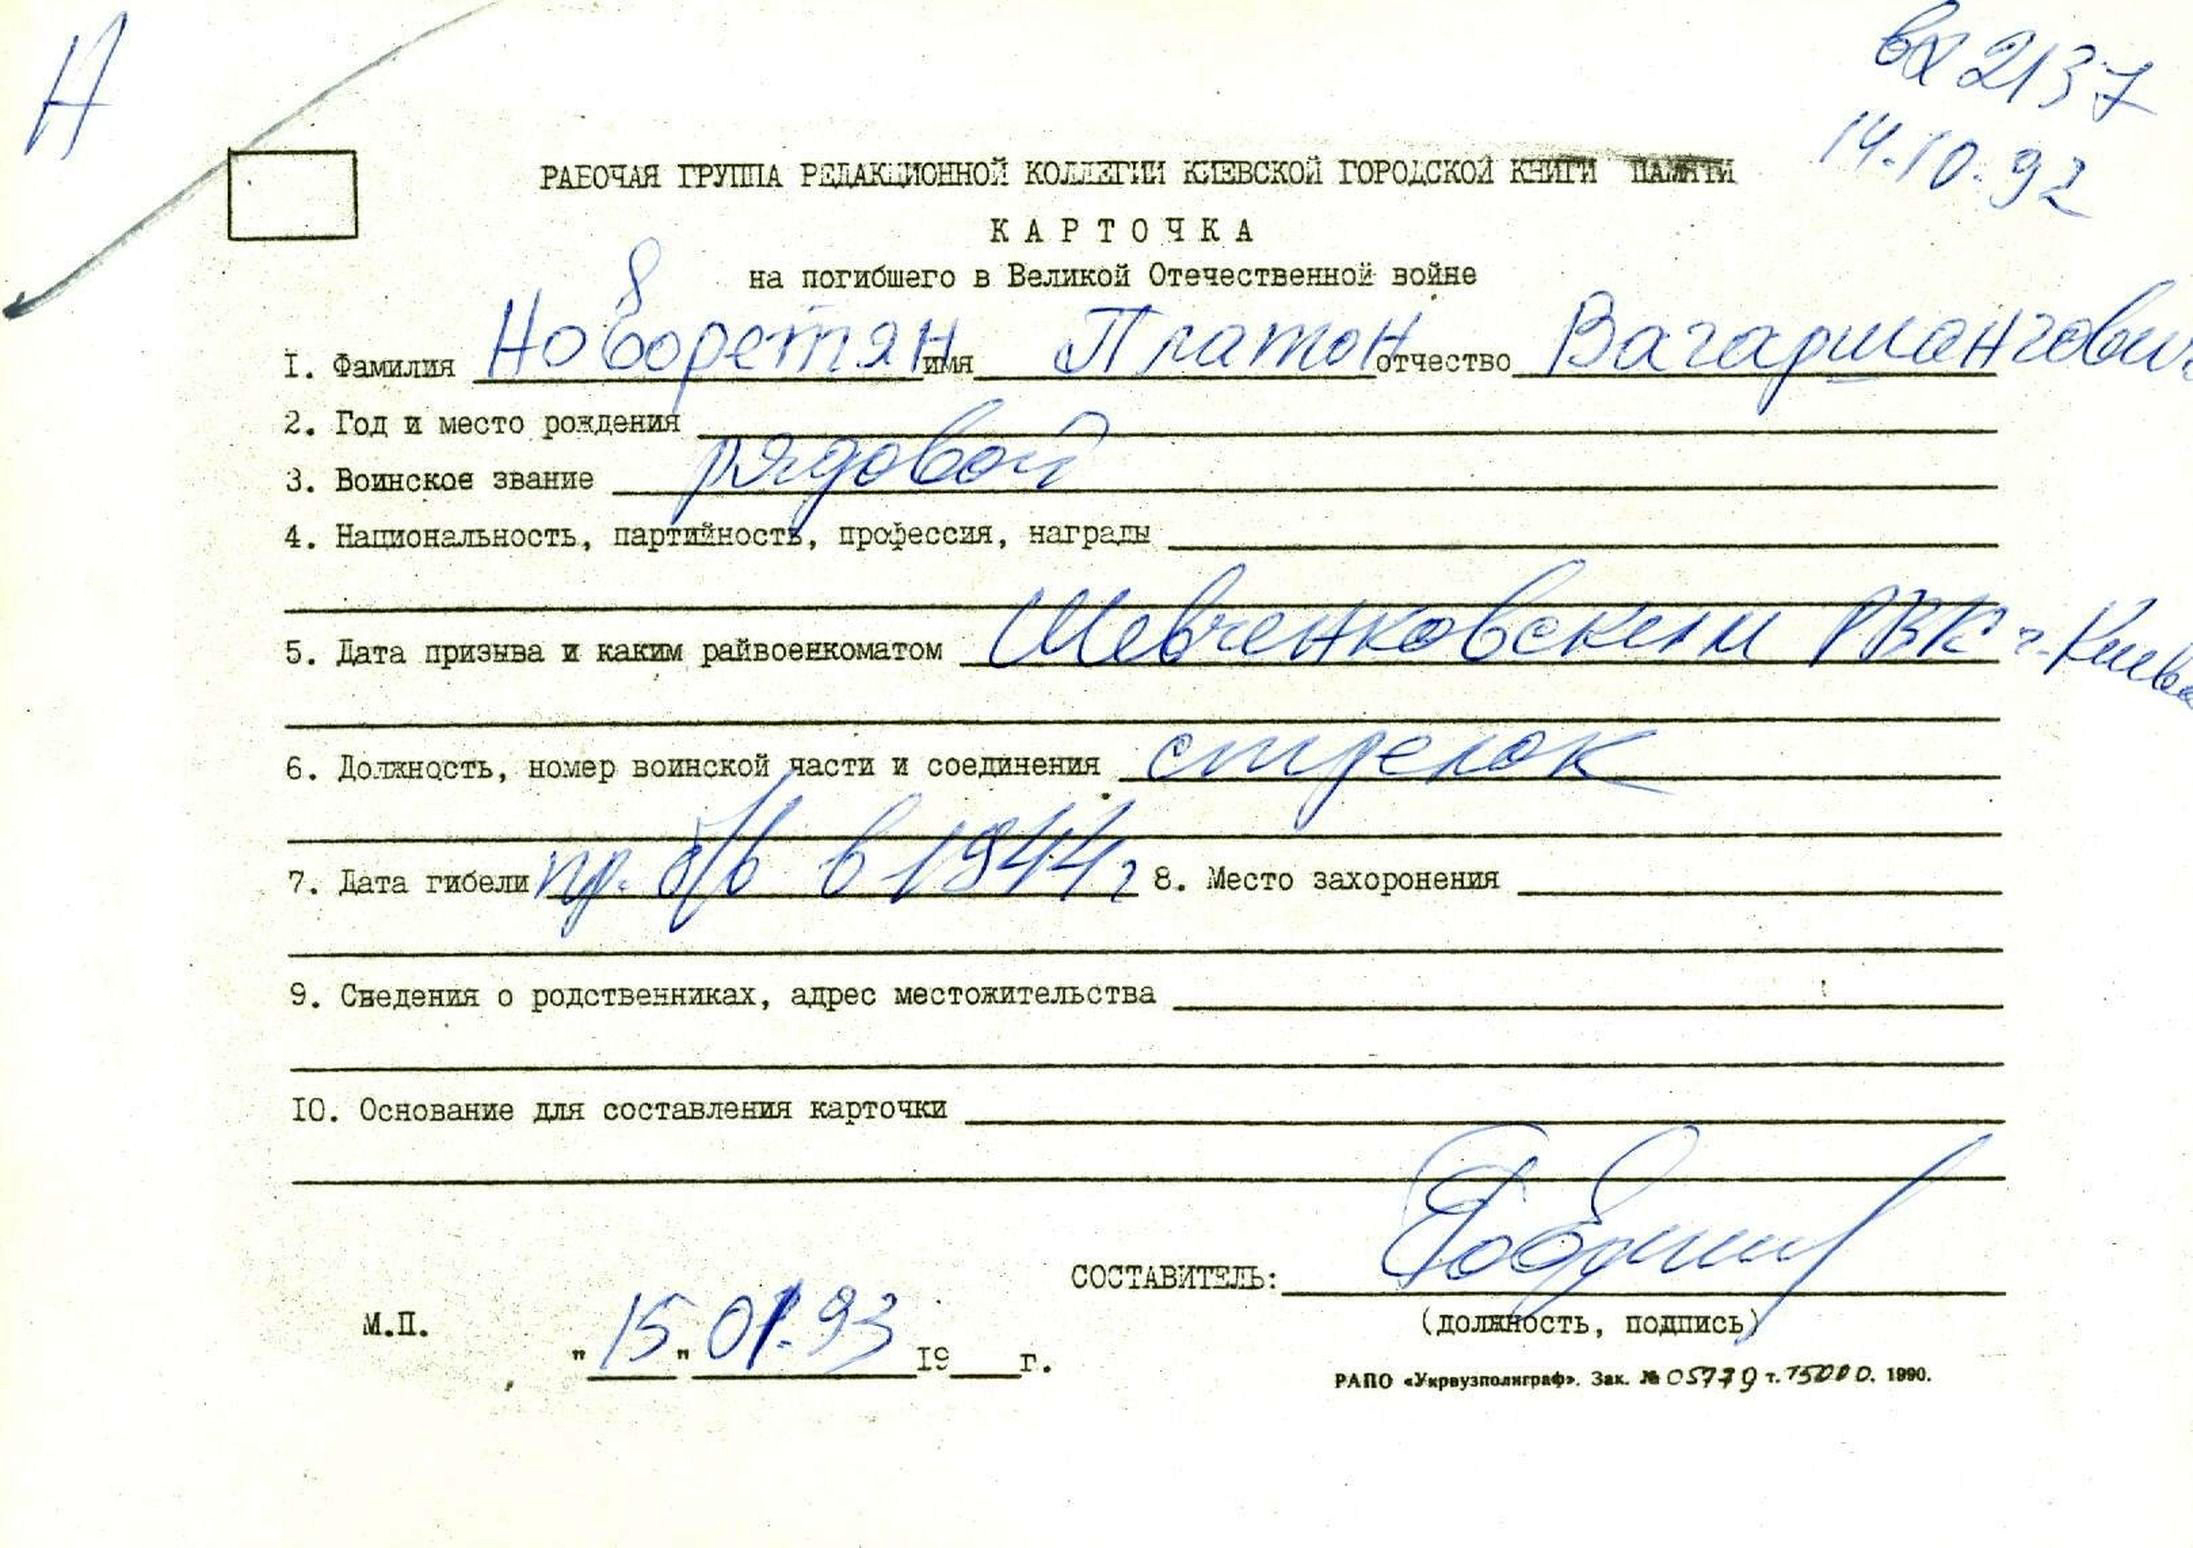 Н
вх 2137
14.10.92
РАБОЧАЯ ГРУППА РЕДАКЦИОННОЙ КОЛЛЕГИИ КИЕВСКОЙ ГОРОДСКОЙ КНИГИ ПАМЯТИ
КАРТОЧКА
на погибшего в Великой Отечественной войне
1. Фамилия имя Платон отчество
2. Год и место рождения
3. Воинское звание рядовой
4. Национальность, партийность, профессия, награды
5. Дата призыва и каким райвоенкоматом Шевченковским РВК г. Киева
6. Должность, номер воинской части и соединения стрелок
7. Дата гибели пр. б/в в 1944 г 8. Место захоронения
9. Сведения о родственниках, адрес местожительства
10. Основание для составления карточки
СОСТАВИТЕЛЬ:
М.П.
(должность, подпись)
"15" 01.93 19 г.
РАПО «Укрвузполиграф». Зак. № 05779 т. 15000. 1990.